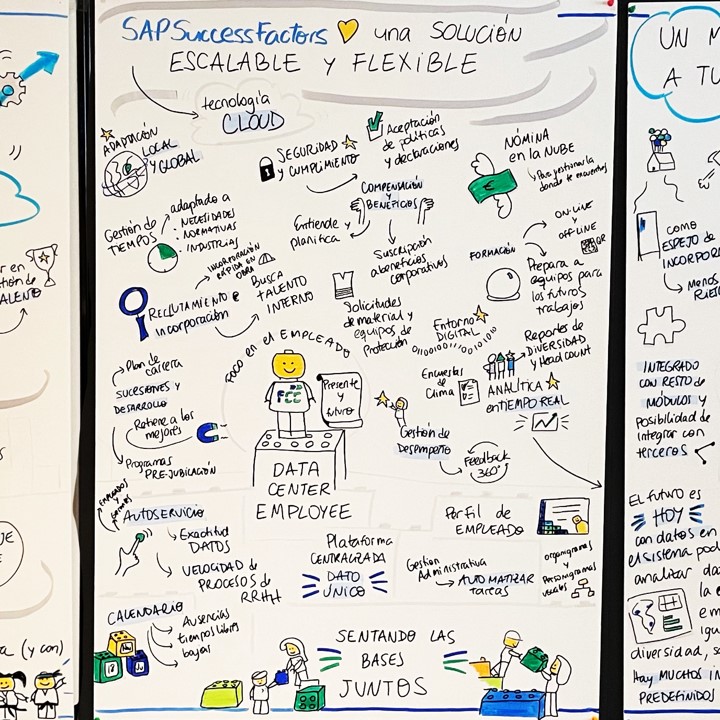 SAP SuccessFactors una SOLUCIÓN
ESCALABLE y FLEXIBLE
tecnología
CLOUD
ADAPTACIÓN
LOCAL
y GLOBAL
SEGURIDAD
y CUMPLIMIENTO
Aceptación
de políticas
y declaraciones
NÓMINA
en la NUBE
COMPENSACIÓN
y
BENEFICIOS
Entiende y
planifica
Suscripción
a beneficios
corporativos
Gestión de
TIEMPOS
adaptado a
· NECESIDADES
· NORMATIVAS
· INDUSTRIAS
ON-LINE
y
OFF-LINE
QR
FORMACIÓN
Prepara a
equipos para
los futuros
trabajos
RECLUTAMIENTO e
incorporación
INCORPORACIÓN
RÁPIDA EN
OBRA
BUSCA
TALENTO
INTERNO
Solicitudes
de material y
equipos de
Protección
Entorno
DIGITAL
Reportes de
DIVERSIDAD
y Head count
Encuestas
de
Clima
ANALÍTICA
en TIEMPO REAL
FOCO en el EMPLEADO
FCC
Presente
y
futuro
Plan de
carrera
SUCESIONES Y
DESARROLLO
Retiene a los
mejores
Programas
PRE-JUBILACIÓN
Gestión de
Desempeño
Feedback
360°
DATA
CENTER
EMPLOYEE
AUTOSERVICIO
Exactitud
DATOS
VELOCIDAD de
PROCESOS de
RRHH
Perfil de
EMPLEADO
Plataforma
CENTRALIZADA
DATO
ÚNICO
Gestión
Administrativa
AUTOMATIZAR
tareas
organigramas
y
Posiciogramas
visuales
CALENDARIO
Ausencias
tiempos libres
bajas
SENTANDO LAS
BASES
JUNTOS
UN M
A TU
como
ESPEJO de
INCORPOR
INTEGRADO
CON RESTO de
MÓDULOS y
Posibilidad de
integrar con
terceros
EL futuro es
HOY
con datos en
el sistema pod
analizar da
la e
em
igu
diversidad, s
Hay MUCHOS IN
PREDEFINIDOS